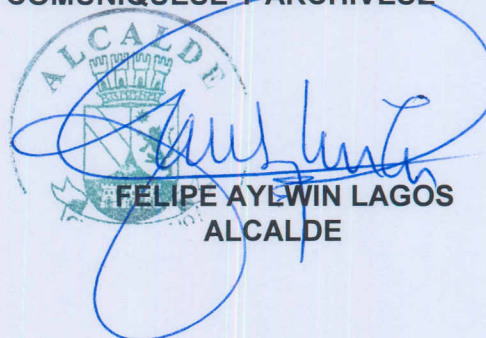 COMUNIQUESE Y ARCHIVESE
ALCALDE
FELIPE AYLWIN LAGOS
ALCALDE